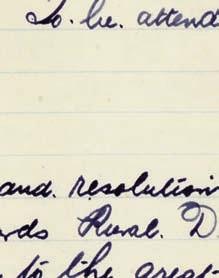 To. be. attend
and. resolution
rds Rural. D
to the great